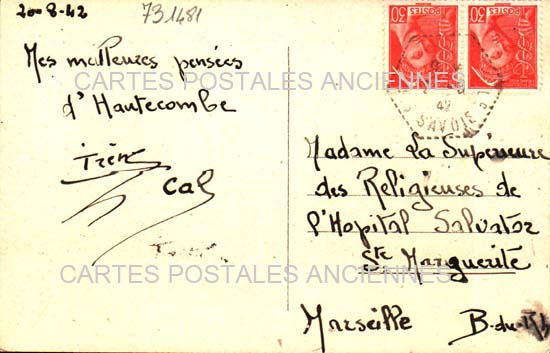 20-8-42
731481
Mes meilleures pensées
d'Hautecombe
Irène
Cal
Madame La Supérieure
des Religieuses de
l'Hopital Salvator
Ste Marguerite
Marseille B-du-Rh
POSTES
30
POSTES
30
42
SAVOIE
CARTES POSTALES ANCIENNES
CARTES POSTALES ANCIENNES